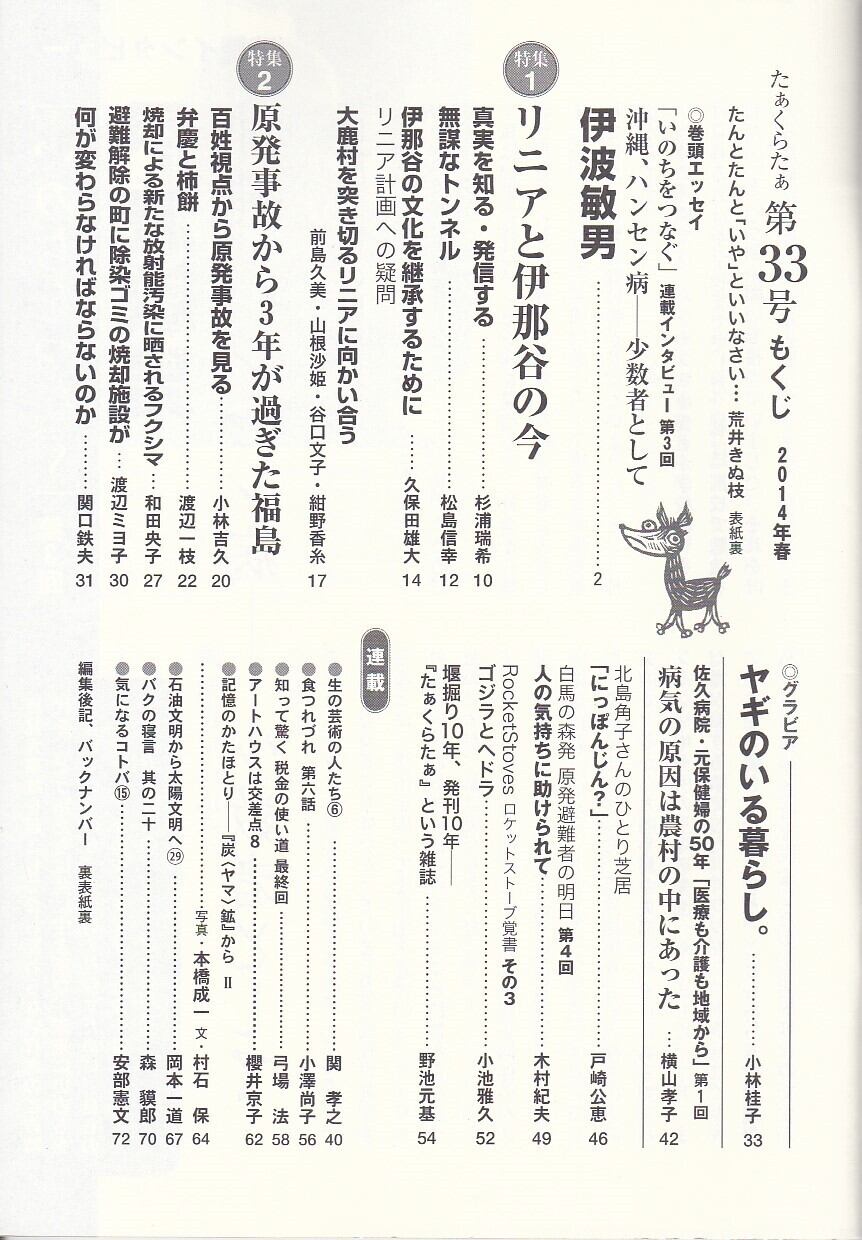 たぁくらたぁ 第33号 もくじ 2014年春
たんとたんと「いや」といいなさい… 荒井きぬ枝 表紙裏
◎巻頭エッセイ
「いのちをつなぐ」連載インタビュー 第3回
沖縄、ハンセン病――少数者として
伊波敏男 …… 2
特集1 リニアと伊那谷の今
真実を知る・発信する …… 杉浦瑞希 10
無謀なトンネル …… 松島信幸 12
伊那谷の文化を継承するために …… 久保田雄大 14
リニア計画への疑問
大鹿村を突き切るリニアに向かい合う
前島久美・山根沙姫・谷口文子・紺野香糸 17
特集2 原発事故から3年が過ぎた福島
百姓視点から原発事故を見る …… 小林吉久 20
弁慶と柿餅 …… 渡辺一枝 22
焼却による新たな放射能汚染に晒されるフクシマ …… 和田央子 27
避難解除の町に除染ゴミの焼却施設が … 渡辺ミヨ子 30
何が変わらなければならないのか …… 関口鉄夫 31
◎グラビア
ヤギのいる暮らし。 …… 小林桂子 33
佐久病院・元保健婦の50年「医療も介護も地域から」第1回
病気の原因は農村の中にあった … 横山孝子 42
北島角子さんのひとり芝居
「にっぽんじん？」 …… 戸崎公恵 46
白馬の森発 原発避難者の明日 第4回
人の気持ちに助けられて …… 木村紀夫 49
RocketStoves ロケットストーブ覚書 その3
ゴジラとヘドラ …… 小池雅久 52
堰掘り10年、発刊10年――
『たぁくらたぁ』という雑誌 …… 野池元基 54
連載
●生の芸術の人たち⑥ …… 関 孝之 40
●食つれづれ 第六話 …… 小澤尚子 56
●知って驚く 税金の使い道 最終回 …… 弓場 法 58
●アートハウスは交差点8 …… 櫻井京子 62
●記憶のかたほとり――『炭〈ヤマ〉鉱』から Ⅱ
…… 写真・本橋成一 文・村石 保 64
●石油文明から太陽文明へ㉙ …… 岡本一道 67
●バクの寝言 其の二十 …… 森 貘郎 70
●気になるコトバ⑮ …… 安部憲文 72
編集後記、バックナンバー 裏表紙裏